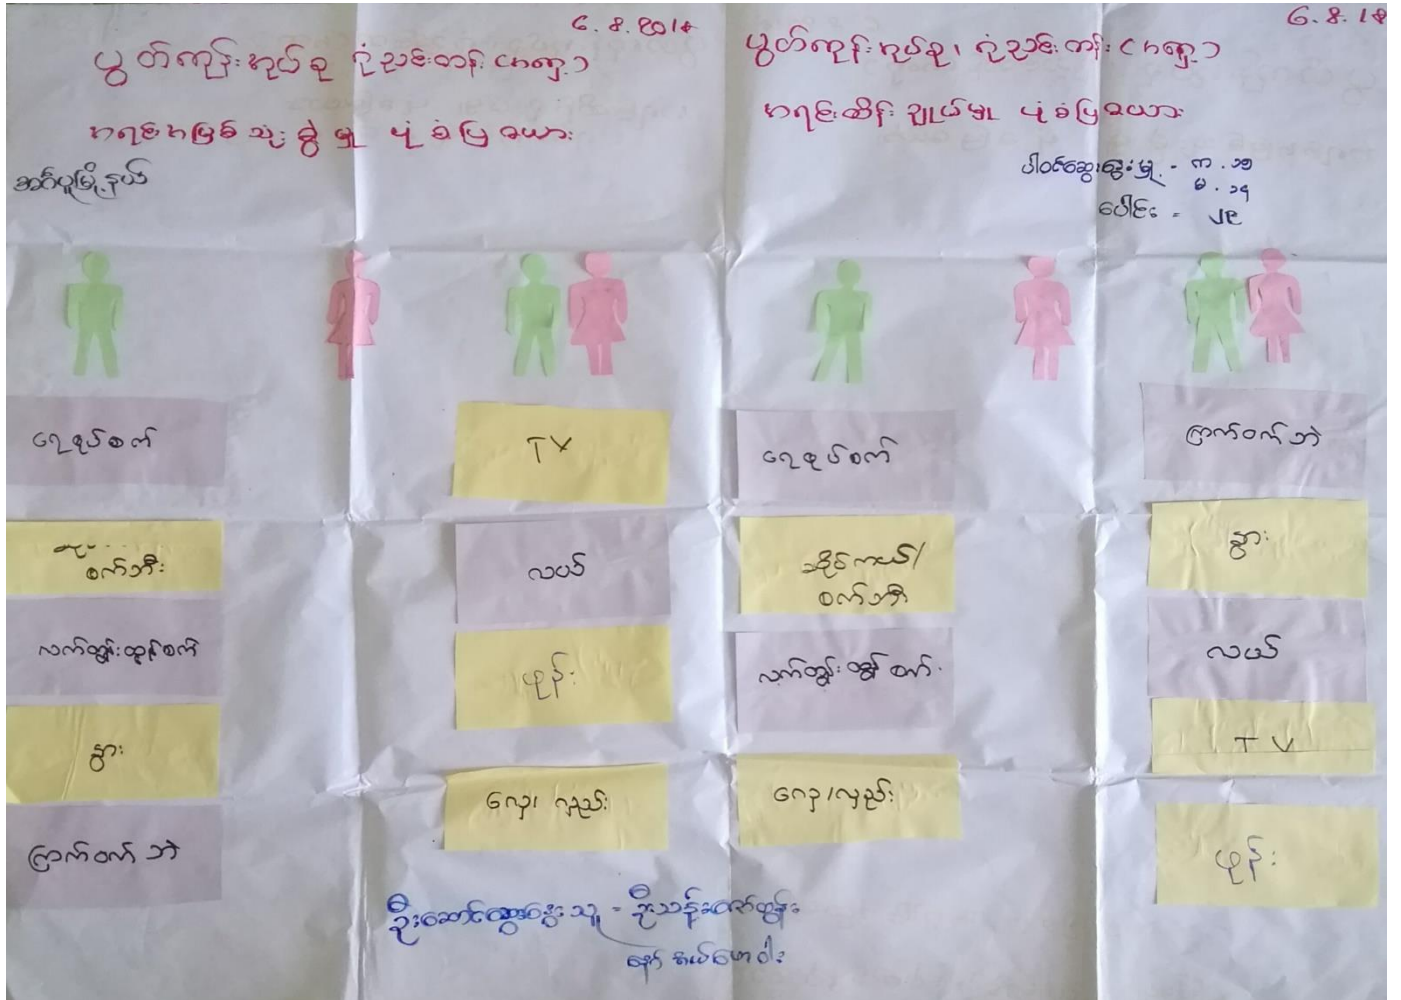 6.8.2018
ပွတ်ကုန်းအုပ်စု ဂုံညင်းတန်း ကျေးရွာ
အရင်းအမြစ်သုံးစွဲမှု ပုံစံပြဇယား
အင်္ဂပူမြို့နယ်
ရေစုပ်စက်
စက်ဘီး
လက်တွန်းထွန်စက်
နွား
ကြက်ဝက်ဘဲ
TV
လယ်
ဖုန်း
လှေ၊ လှည်း
6.8.18
ပွတ်ကုန်းအုပ်စု၊ ဂုံညင်းတန်း ကျေးရွာ
အရင်းထိန်းချုပ်မှု ပုံစံပြဇယား
ပါဝင်ဆွေးနွေးမှု - က . ၁၅
မ . ၁၄
ပေါင်း = ၂၉
ရေစုပ်စက်
ဆိုင်ကယ်/
စက်ဘီး
လက်တွန်းထွန်စက်
လှေ၊လှည်း
ကြက်ဝက်ဘဲ
နွား
လယ်
TV
ဖုန်း
ဦးဆောင်ဆွေးနွေးသူ -